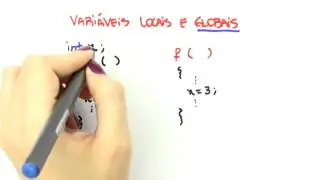 VARIÁVEIS LOCAIS E GLOBAIS
int
( )
f( )
{
⋮
x=3;
⋮
}
}